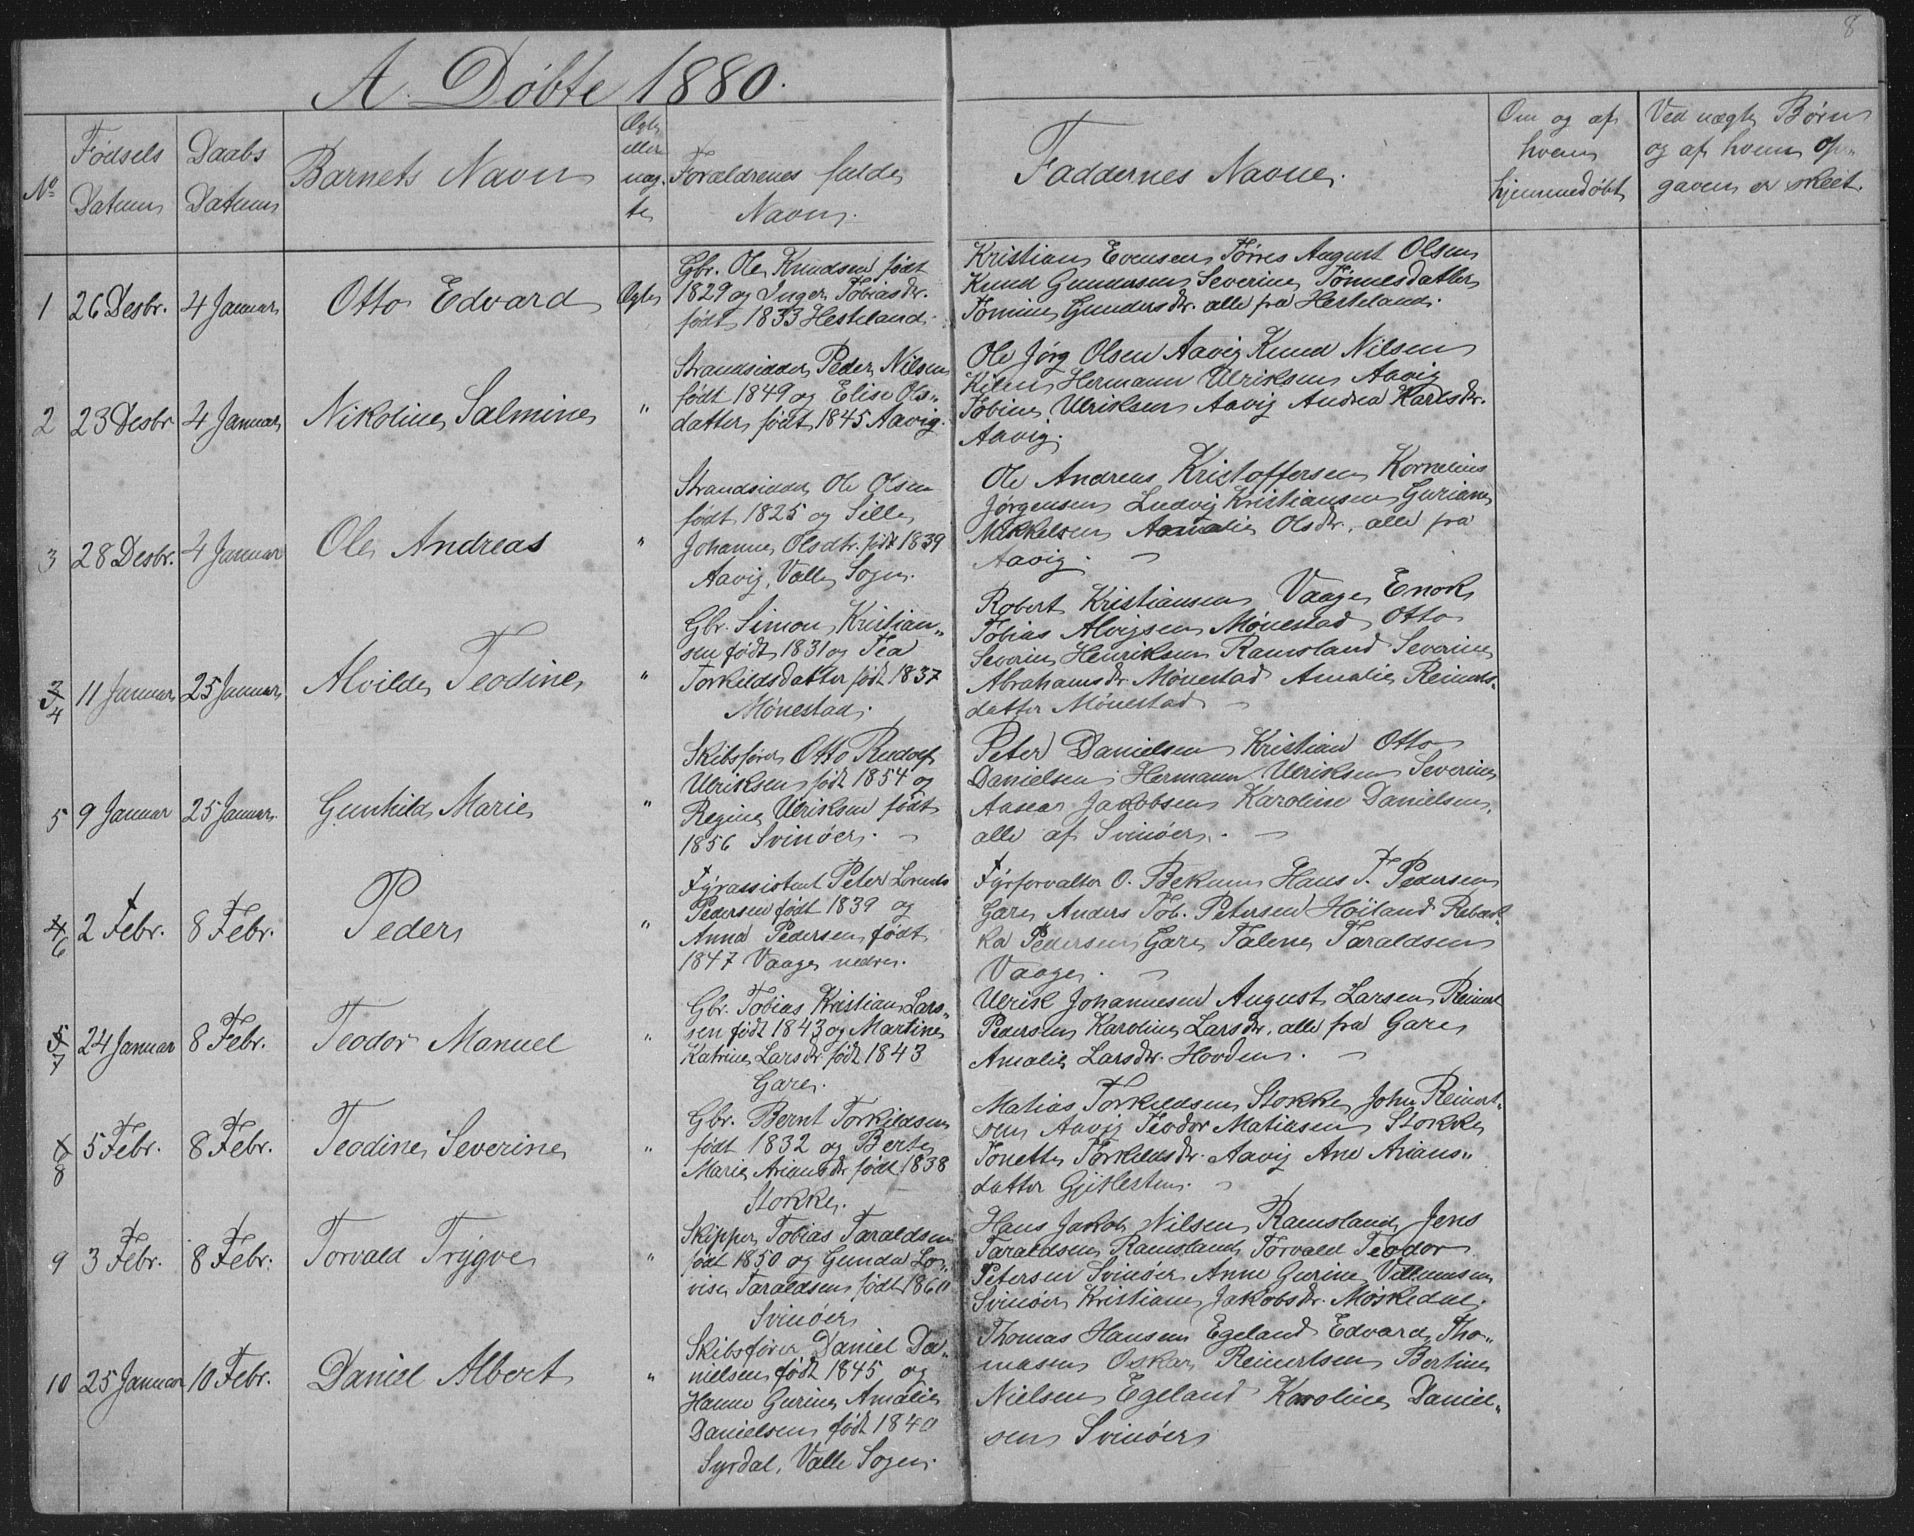 8
A. Döbte 1880.
No
Födsels
Datum
Daabs
Datum
Barnets Navn
Ægte
eller
uæg-
te
Forældrenes fulde
Navn.
Faddernes Navne.
Om og af
hvem
hjemmedøbt
Ved uægte Børn
og af hvem Op-
gaven er skeet.
1
26 Desbr.
4 Januar
Otto Edvard
Ægte
Gbr. Ole Knudsen født
1829 og Inger Tobiasdr.
født 1833 Hesteland.
Kristian Evensen Tørres August Olsen
Knud Gundersen Severine Tønnesdatter
Tomine Gundersdr. alle fra Hesteland.
2
23 Desbr
4 Januar
Nikoline Salmine
"
Strandsidder Peder Nilsen
født 1849 og Elise Ols-
datter født 1845 Aavig.
Ole Jørg Olsen Aavig Knud Nilsen
Kilen Hermann Ulriksen Aavig
Tobine Ulriksen Aavig Andrea Karlsdr.
Aavig.
3
28 Desbr.
4 Januar
Ole Andreas
"
Strandsidder Ole Olsen
født 1825 og Sille
Johanne Olsdtr. født 1839
Aavig, Valle Sogn.
Ole Andreas Kristoffersen Kornelius
Jørgensen Ludvig Kristiansen Guriane
Mikkelsen Amalie Olsdr. alle fra
Aavig.
3
4
11 Januar
25 Januar
Alvilde Teodine
"
Gbr. Simon Kristian-
sen født 1831 og Tea
Torkildsdatter født 1837
Mønestad.
Robert Kristiansen Vaage Enok
Tobias Alvigsen Mønestad Otto
Severin Henriksen Ramsland Severine
Abrahamsdr Mønestad Amalie Reinerts-
datter Mønestad
5
9 Januar
25 Januar
Gunhild Marie
"
Skibsfører Otto Rudolf
Ulriksen født 1854 og
Regine Ulriksen født
1856 Svinøer.
Peter Danielsen Kristian Otto
Danielsen Hermann Ulriksen Severine
Aasear Jakobsen Karoline Danielsen,
alle af Svinøer.
4
6
2 Febr.
8 Febr.
Peder
"
Fyrassistent Peter Lorents
Pedersen født 1839 og
Anna Pedersen født
1847 Vaage nedre.
Fyrforvalter O. Bekman Hans T. Pedersen
Gare Anders Tob. Petersen Höiland Rebek
ka Pedersen Gare Talene Taraldsen
Vaage.
5
7
24 Januar
8 Febr.
Teodor Manuel
"
Gbr. Tobias Kristian Lars-
sen født 1843 og Martine
Katrine Larsdr født 1843
Gare.
Ulrik Johannesen August Larsen Reinert
Pedersen Karoline Larsdr. alle fra Gare
Amalie Larsdr. Hovden.
6
8
5 Febr.
8 Febr.
Teodine Severine
"
Gbr. Bernt Torkildsen
født 1832 og Berte
Marie Ariansdr født 1838
Stokke.
Matias Torkildsen Stokke John Reinert-
sen Aavig Teodor Matiasen Stokke
Tonette Torkildsdr. Aavig Ane Arians-
datter Gjitlesten.
9
3 Febr.
8 Febr.
Torvald Trygve
"
Skipper Tobias Taraldsen
født 1850 og Gunda Lo-
vise Taraldsen født 1860
Svinøer
Hans Jakob Nilsen Ramsland Jens
Taraldsen Ramsland Torvald Teodor
Petersen Svinøer Anne Gurine Villumsen
Svinøer Kristiane Jakobsdr. Møskedal.
10
25 Januar
10 Febr.
Daniel Albert
"
Skibsfører Daniel Da-
nielsen født 1845 og
Hanne Gurine Amalie
Danielsen født 1840
Syrdal, Valle Sogn.
Thomas Hansen Egeland Edvard Tho-
masen Oskar Reinertsen Bertine
Nielsen Egeland Karoline Daniel-
sen Svinøer